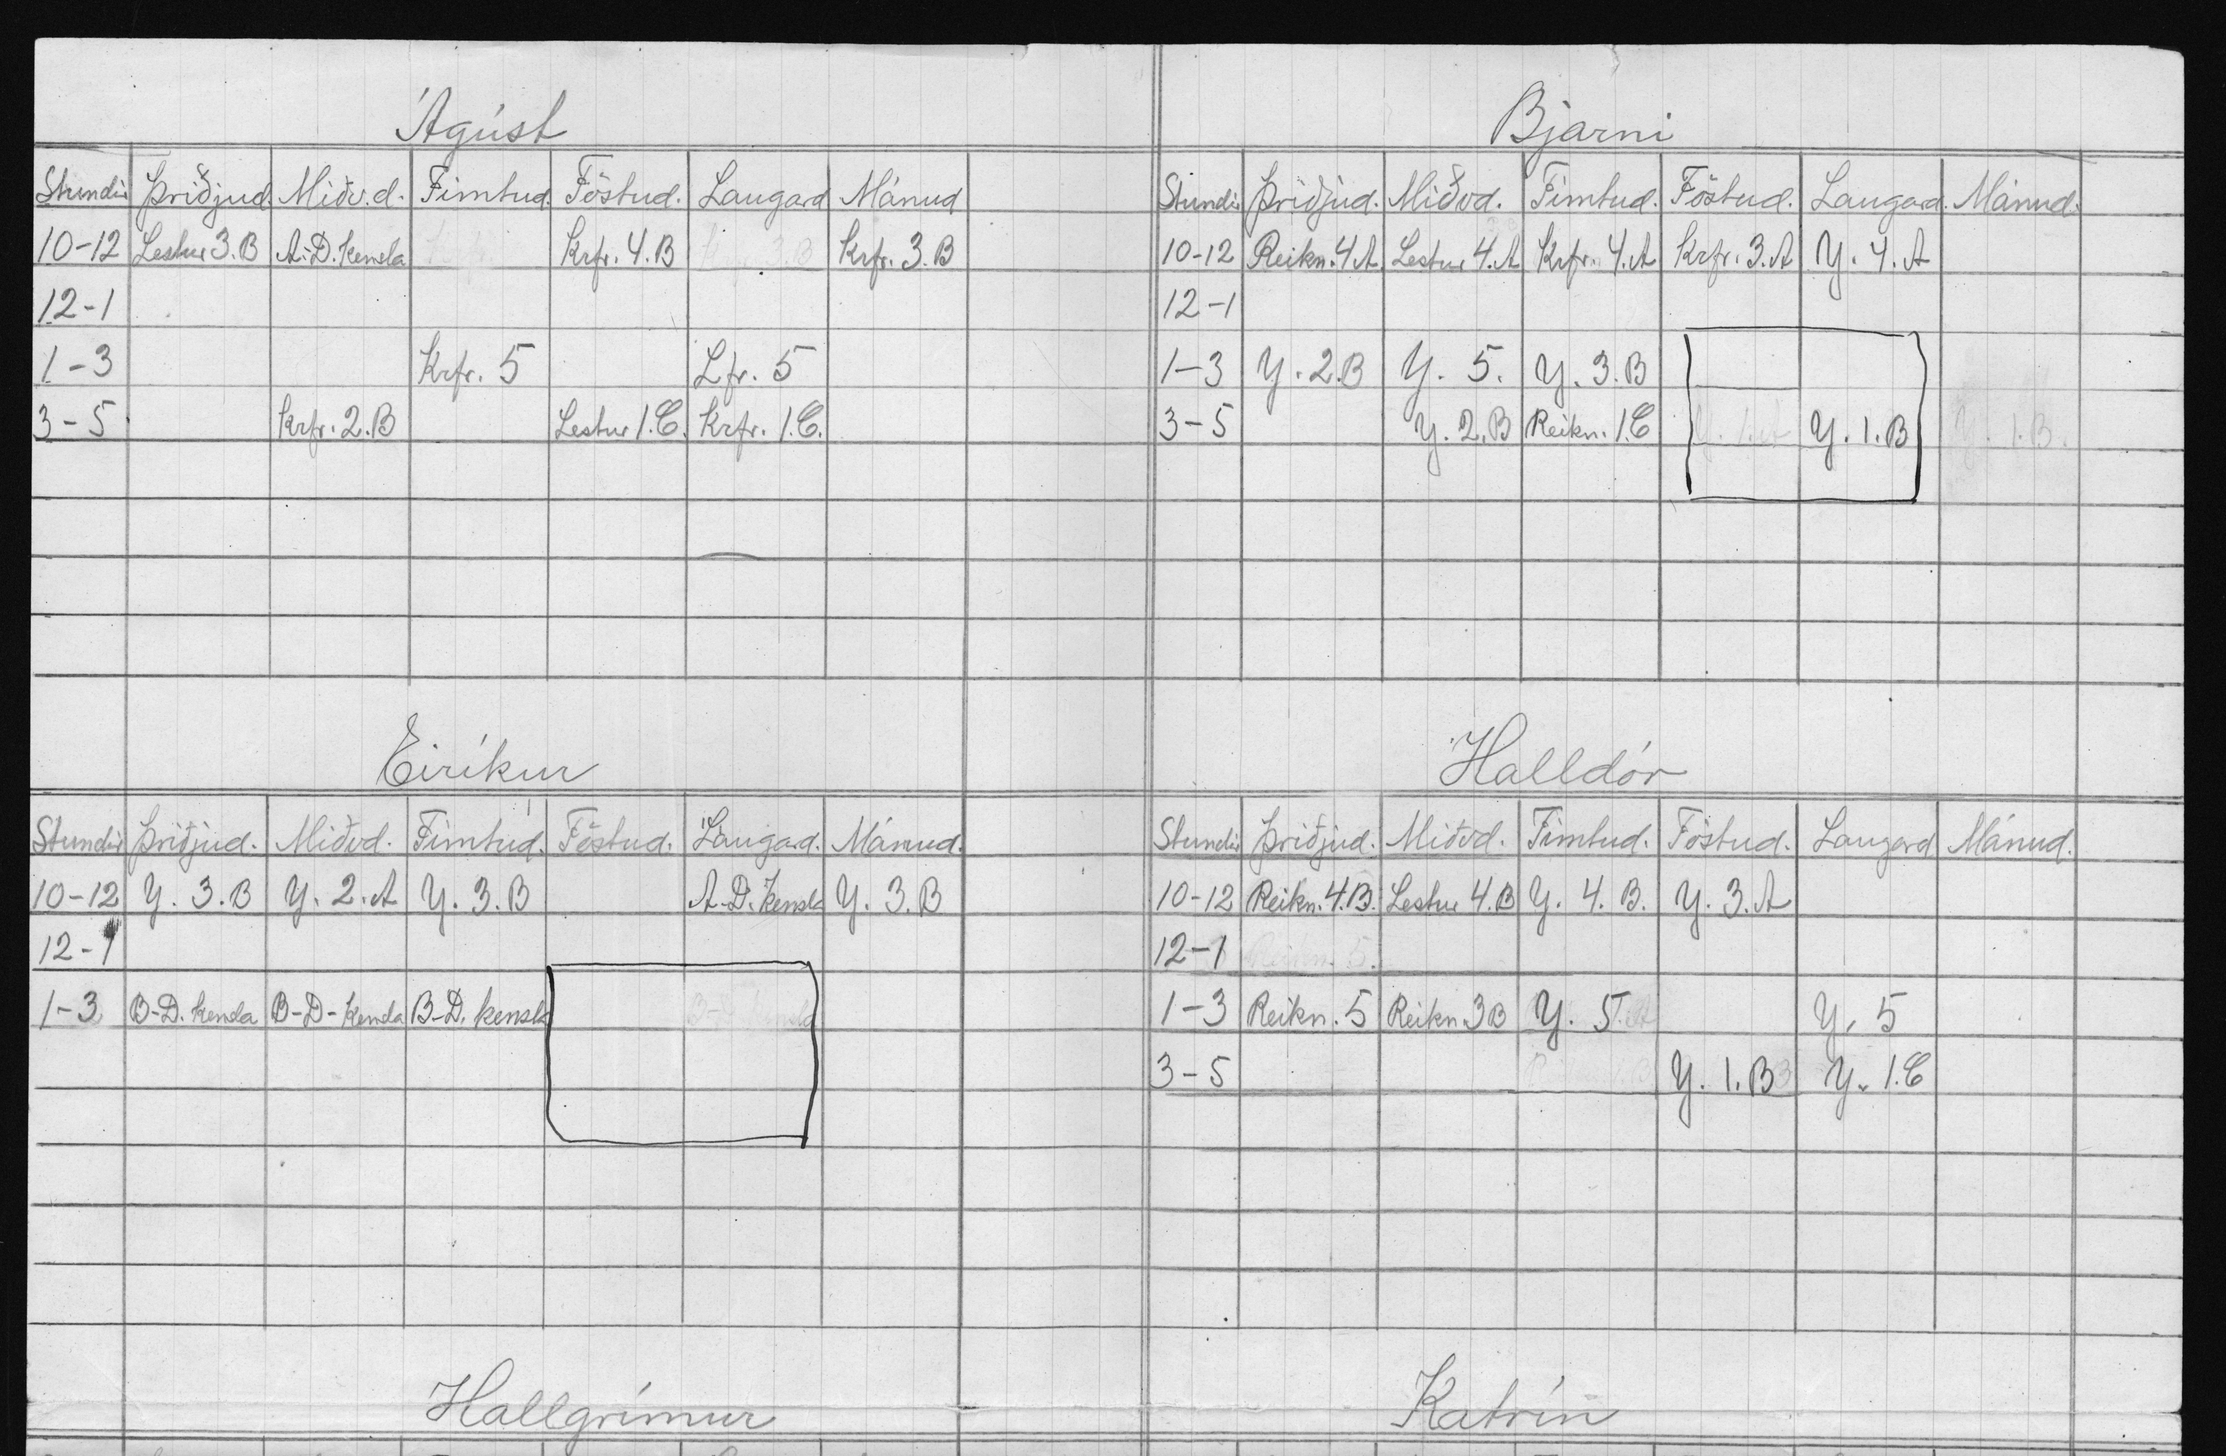 Ágúst
Stundir Þriðjud. Miðv.d. Fimtud. Föstud. Laugard Mánud
10-12 Lestur 3.B A.-D. kensla Krfr. 4.B Krfr. 3.B
12-1
1-3 Krfr. 5 Lfr. 5
3-5 Krfr. 2.B Lestur 1.C. Krfr. 1.C.
Bjarni
Stundir Þriðjud. Miðvd. Fimtud. Föstud. Laugard. Mánud.
10-12 Reikn. 4.A Lestur 4.A Krfr. 4.A Krfr. 3.A Y. 4.A
12-1
1-3 Y. 2.B Y. 5. Y. 3.B
3-5 Y. 2.B Reikn. 1.C Y. 1.A Y. 1.B Y. 1.B.
Eiríkur
Stundir Þriðjud. Miðvd. Fimtud. Föstud. Laugard. Mánud.
10-12 Y. 3.B Y. 2.A Y. 3.B A.-D. kensla Y. 3.B
12-1
1-3 B-D. kensla B-D-kensla B-D. kensla B-D. kensla
Halldór
Stundir Þriðjud. Miðvd. Fimtud. Föstud. Laugard Mánud.
10-12 Reikn. 4.B. Lestur 4.B Y. 4.B. Y. 3.A
12-1 Reikn. 5.
1-3 Reikn. 5 Reikn. 3B Y. 5 Y. 5
3-5 Y. 1.B Y. 1.C
Hallgrímur
Katrín